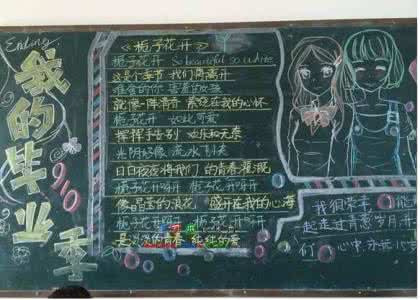 Ending:
我的毕业季
910
《栀子花开》
栀子花开 So beautiful so white
这是个季节 我们将离开
难舍的你 害羞的女孩
就像一阵清香 萦绕在我的心怀
栀子花开 如此可爱
挥挥手告别 欢乐和无奈
光阴好像 流水飞快
日日夜夜将我们的青春灌溉
栀子花开呀开 栀子花开呀开
像晶莹的浪花 盛开在我的心海
栀子花开呀开 栀子花开呀开
是淡淡的青春 纯纯的爱
我很荣幸
起走过青葱岁月
们 心中永远